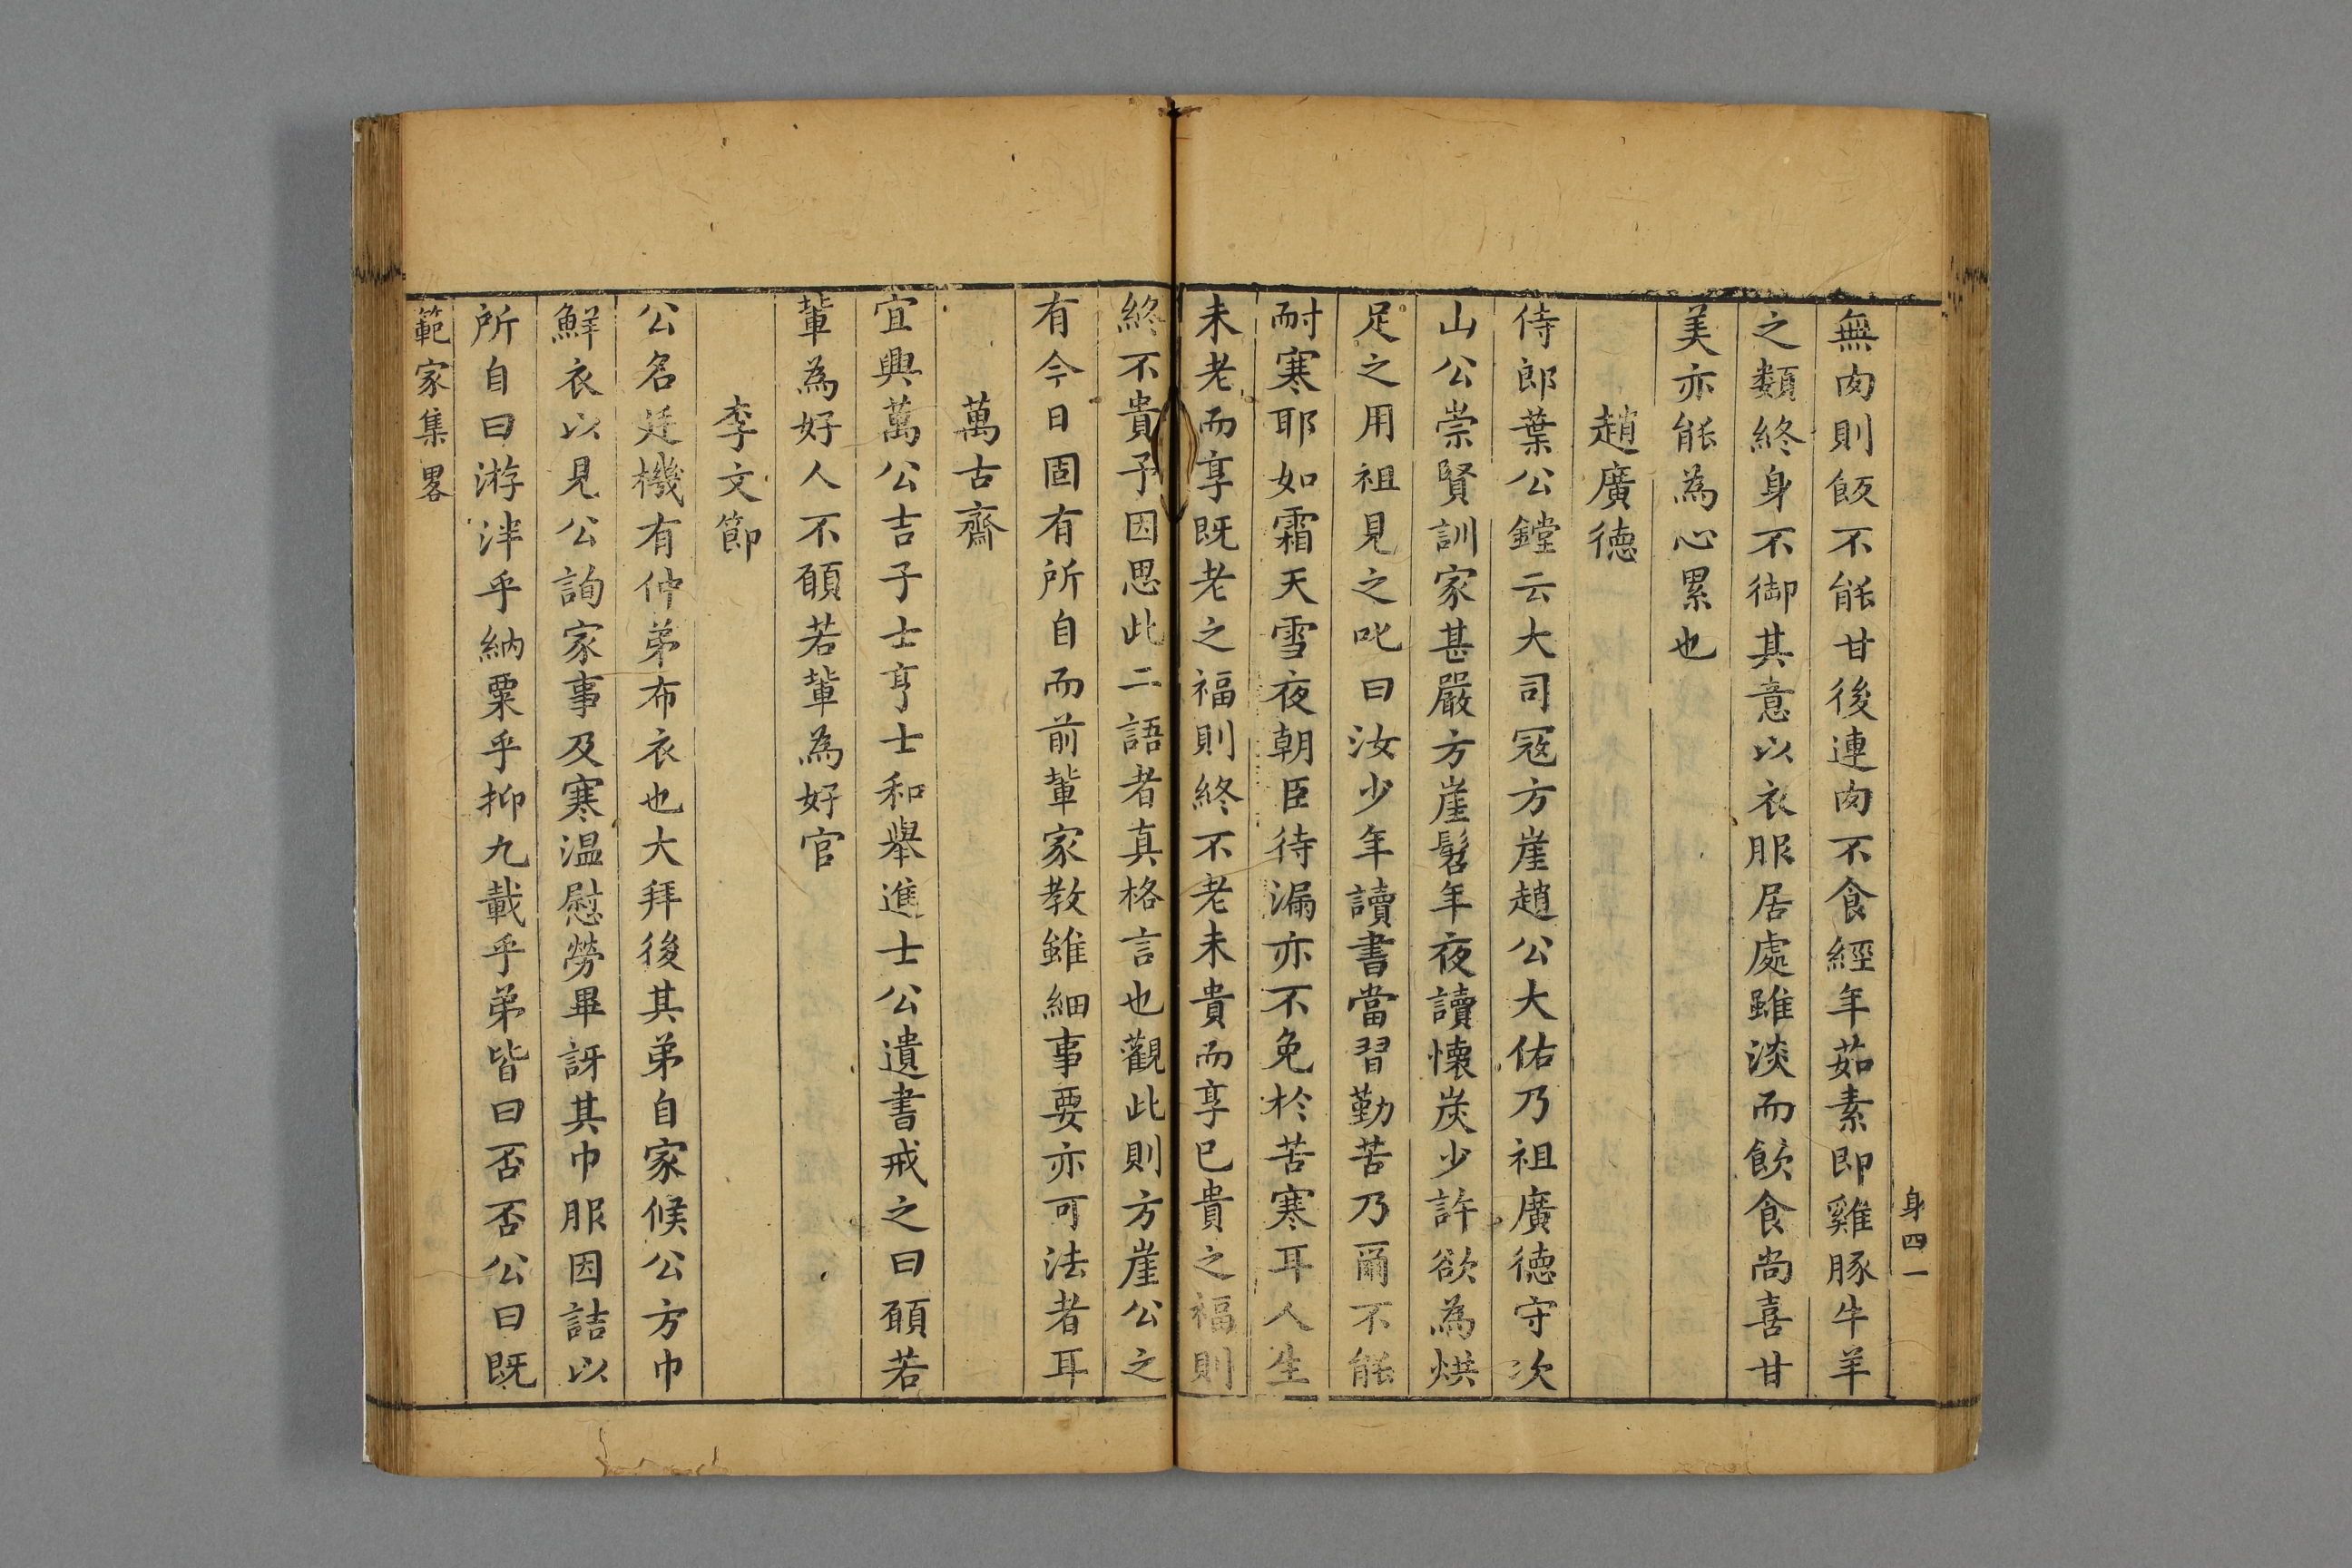 身四一
無肉則飯不能甘後連肉不食經年茹素即雞豚牛羊
之類終身不御其意以衣服居處雖淡而飲食尚喜甘
美亦能為心累也
趙廣德
侍郎葉公鏜云大司寇方崖趙公大佑乃祖廣德守次
山公崇賢訓家甚嚴方崖髫年夜讀懷炭少許欲為烘
足之用祖見之叱曰汝少年讀書當習勤苦乃爾不能
耐寒耶如霜天雪夜朝臣待漏亦不免於苦寒耳人生
未老而享既老之福則終不老未貴而享已貴之福則
終不貴予因思此二語者真格言也觀此則方崖公之
有今日固有所自而前輩家教雖細事要亦可法者耳
萬古齋
宜興萬公吉子士亨士和舉進士公遺書戒之曰願若
輩為好人不願若輩為好官
李文節
公名廷機有仲弟布衣也大拜後其弟自家候公方巾
鮮衣以見公詢家事及寒温慰勞畢訝其巾服因詰以
所自曰游泮乎納粟乎抑九載乎弟皆曰否否公曰既
範家集畧